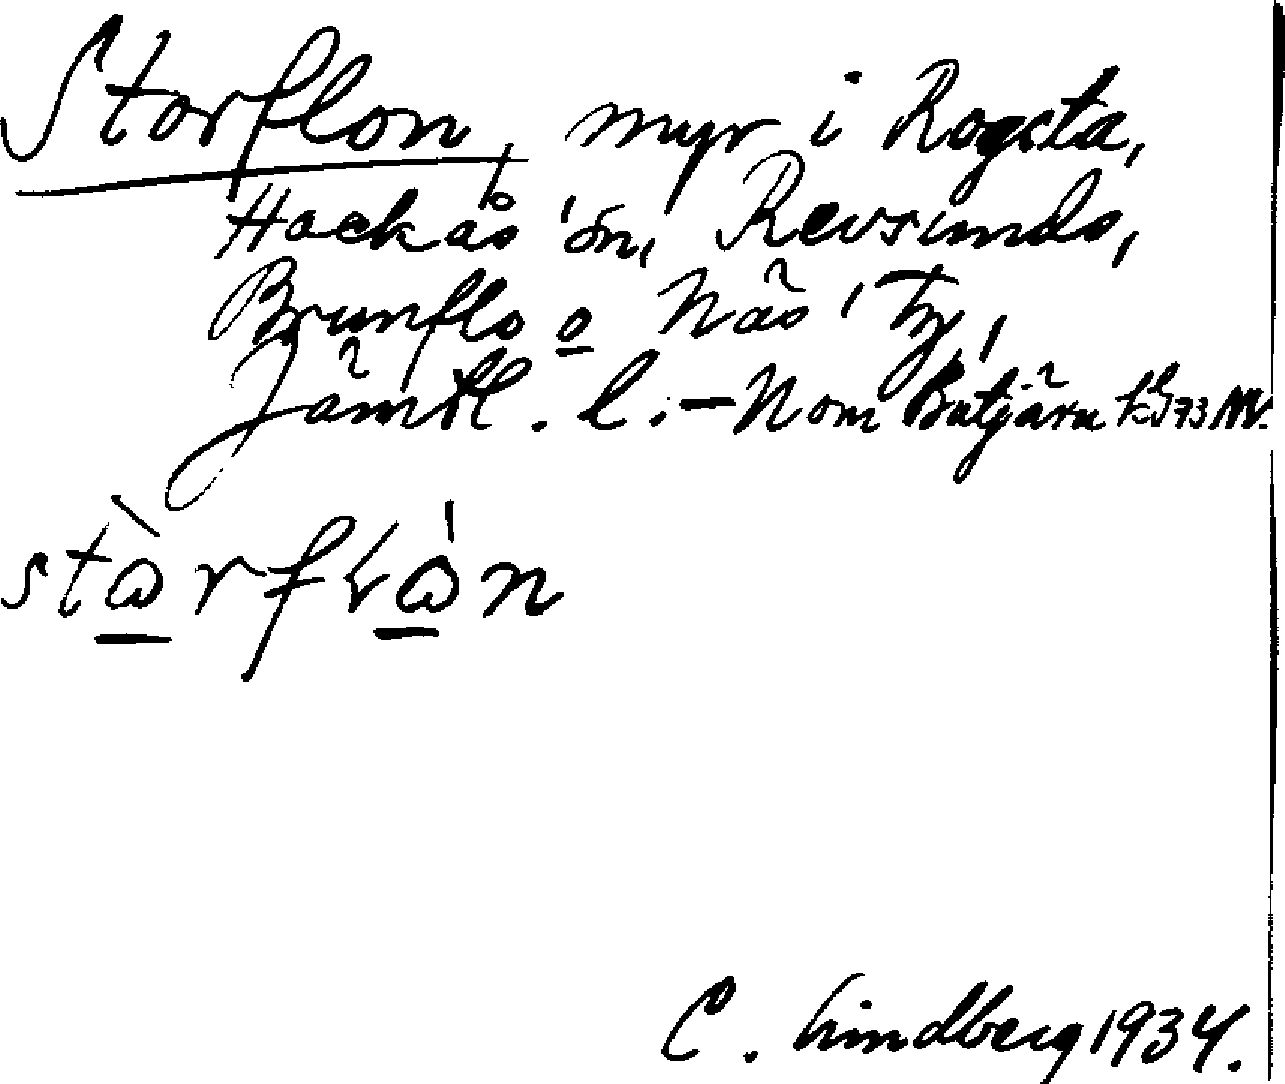 Storflon, myr i Rogsta,
Hackås sn, Revsunds,
Brunflo o Näs tg,
Jämtl. l. – Nom Butjärn
stὼrfɽὼn
C. Lindberg 1934.